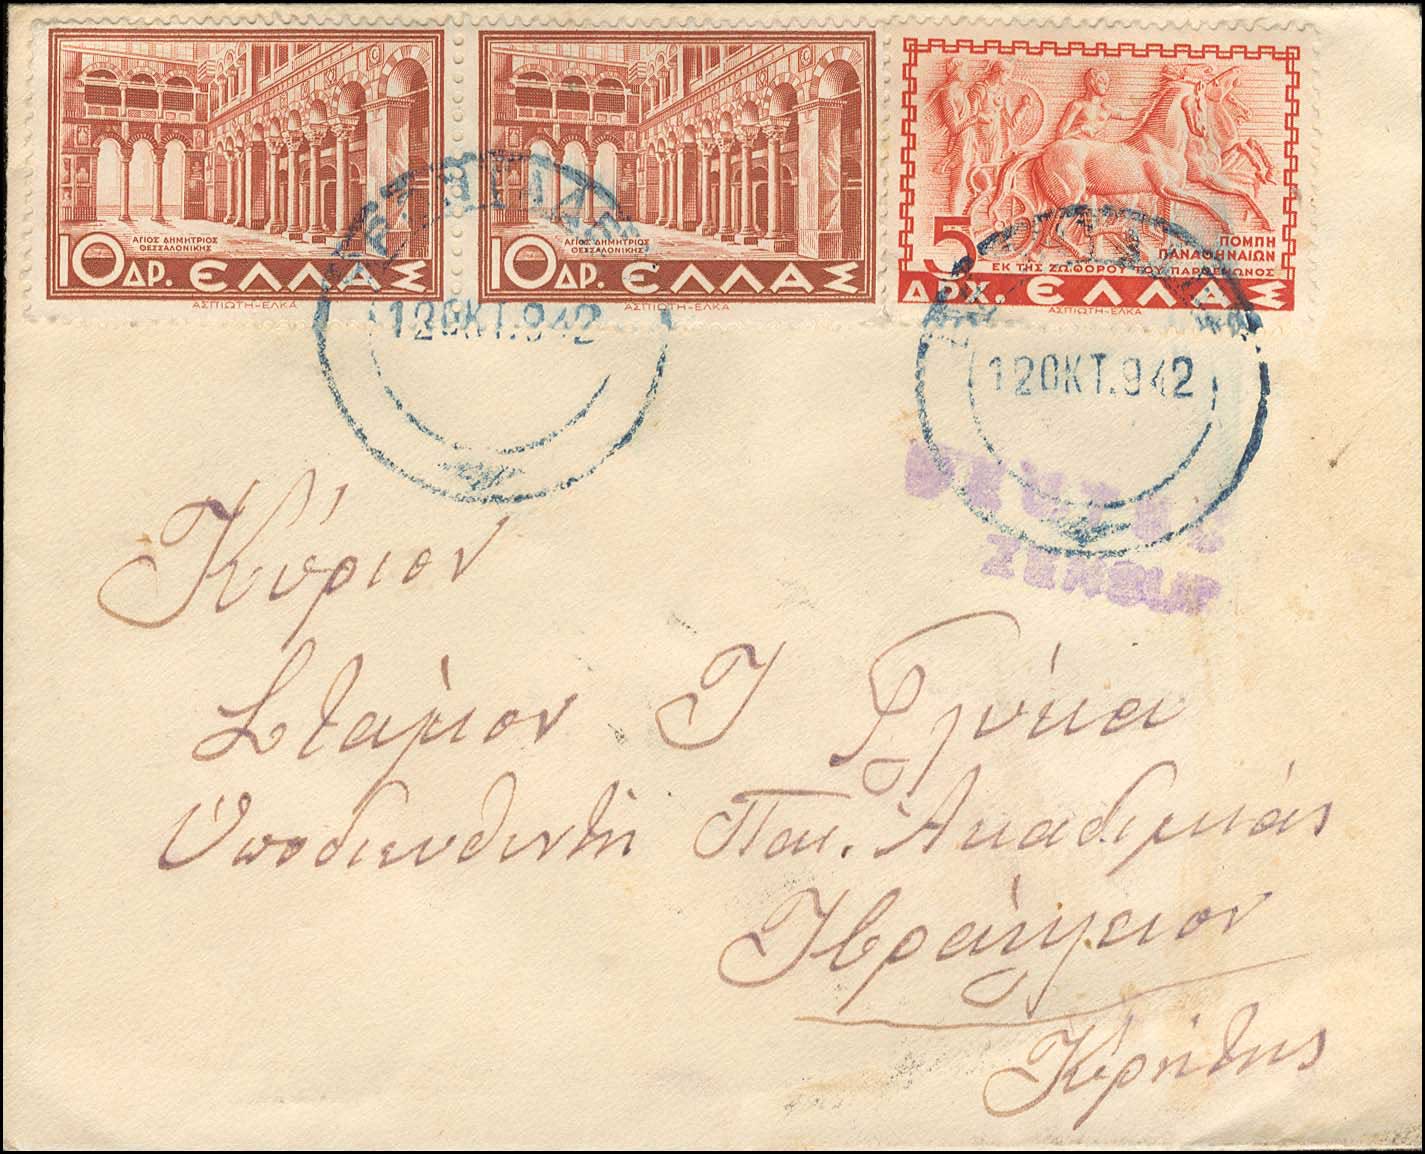 ΑΓΙΟΣ ΔΗΜΗΤΡΙΟΣ
ΘΕΣΣΑΛΟΝΙΚΗΣ
10 ΔΡ. ΕΛΛΑΣ
ΑΣΠΙΩΤΗ-ΕΛΚΑ
ΑΓΙΟΣ ΔΗΜΗΤΡΙΟΣ
ΘΕΣΣΑΛΟΝΙΚΗΣ
10 ΔΡ. ΕΛΛΑΣ
ΑΣΠΙΩΤΗ-ΕΛΚΑ
5 ΠΟΜΠΗ
ΠΑΝΑΘΗΝΑΙΩΝ
ΕΚ ΤΗΣ ΖΩΦΟΡΟΥ ΤΟΥ ΠΑΡΘΕΝΩΝΟΣ
ΔΡΧ. ΕΛΛΑΣ
ΑΣΠΙΩΤΗ-ΕΛΚΑ
12ΟΚΤ.942
12ΟΚΤ.942
Zensur
Κύριον
Σταμιον Ι Γλύκα
Υποδιευθυντή Παι. Ακαδιμιάς
Ηράκλειον
Κρήτης